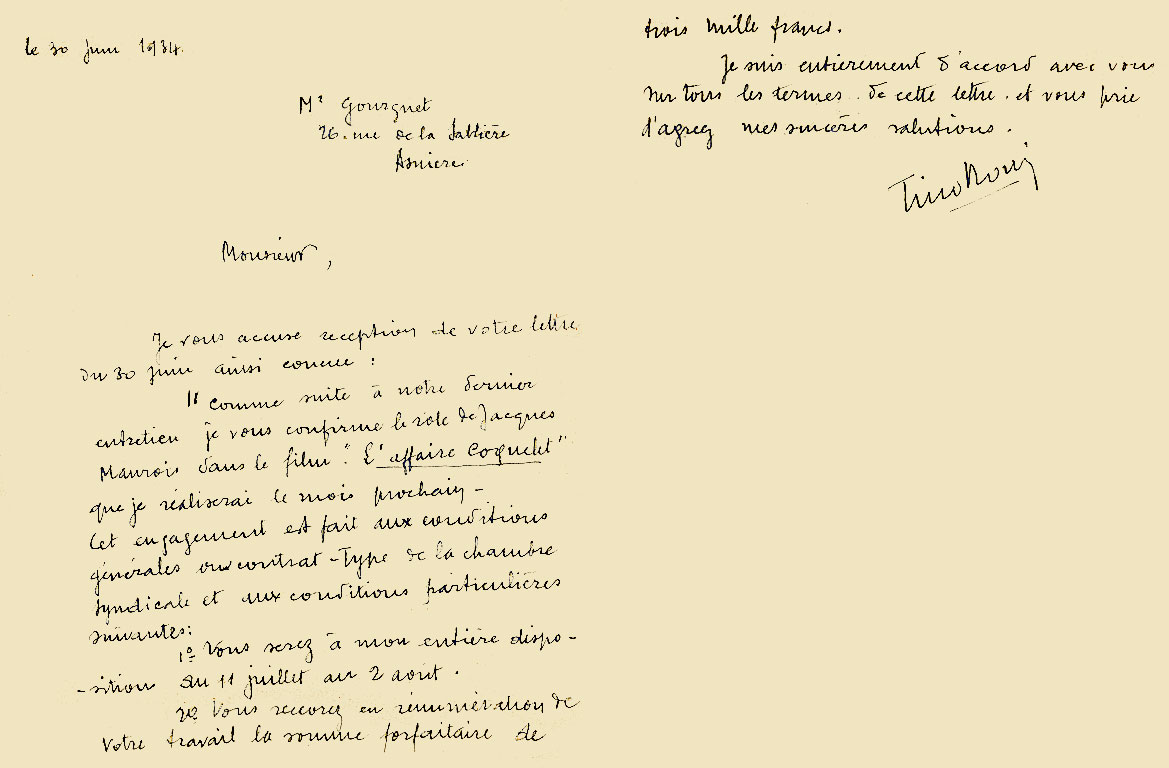 le 30 Juin 1934.
Mr Gourguet
26. rue de la Sablière
Asnieres
Monsieur,
Je vous accuse reception de votre lettre
du 30 juin ainsi concue :
"Comme suite à notre dernier
entretien je vous confirme le role de Jacques
Maurois dans le film "L'affaire Coquelet"
que je réaliserai le mois prochain -
Cet engagement est fait aux conditions
générales du contrat-Type de la chambre
syndicale et aux conditions particulières
suivantes:
1º Vous serez à mon entière dispo-
-sition du 11 juillet au 2 aout.
2º Vous recevrez en rénumération de
votre travail la somme forfaitaire de
trois mille francs.
Je suis entièrement d'accord avec vous
sur tous les termes. de cette lettre. et vous prie
d'agreez mes sincères salutions.
Tino Rossi